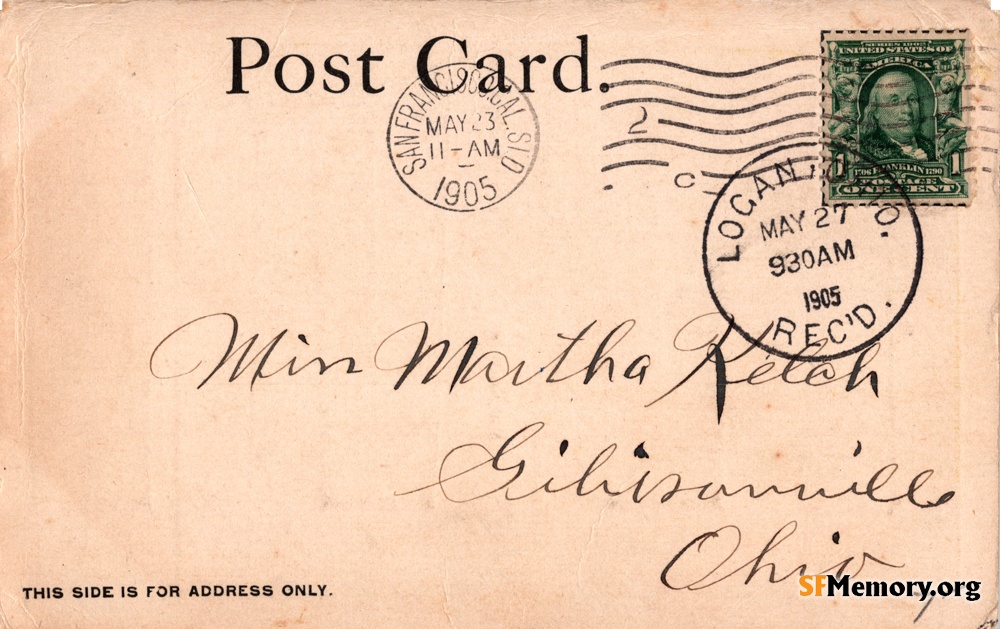 Post Card.
SAN FRANCISCO, CAL. STA. D
MAY 23
11-AM
1905
2
C
SERIES 1902
UNITED STATES OF
AMERICA
1 1706 FRANKLIN 1790 1
POSTAGE
ONE CENT
LOGAN, O.
MAY 27
930AM
1905
REC'D.
Miss Martha Kelch
Gibisonville
Ohio
THIS SIDE IS FOR ADDRESS ONLY.
SFMemory.org